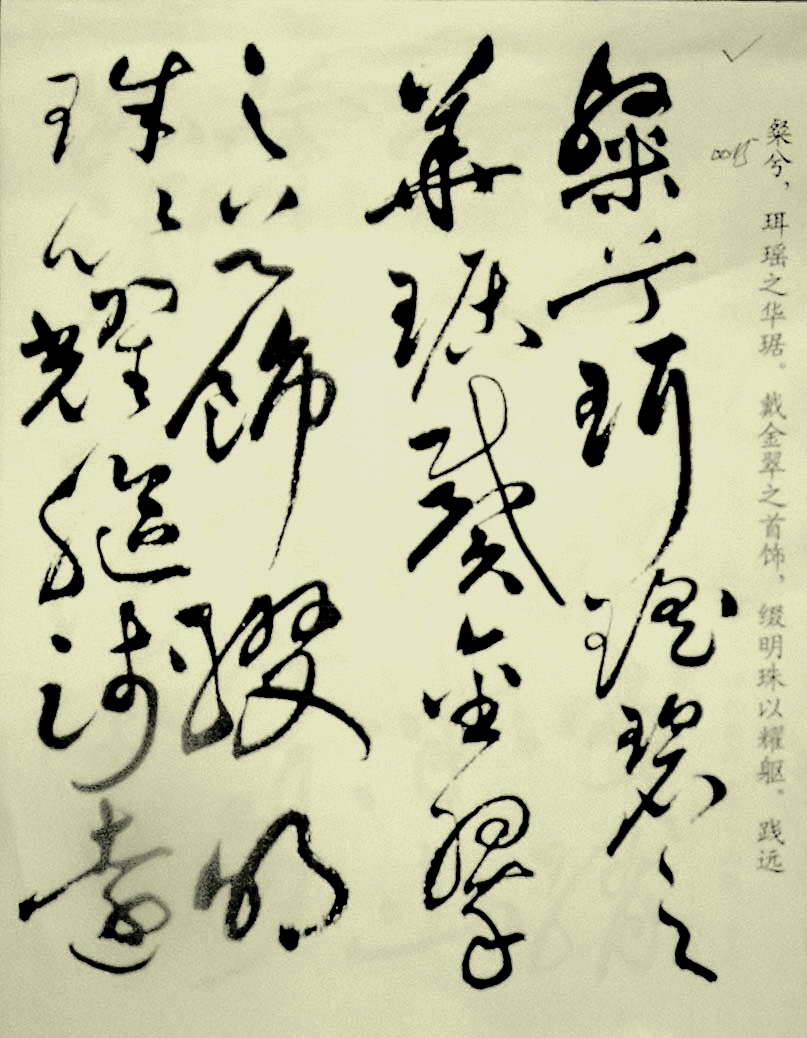 粲兮，珥瑶之华琚。戴金翠之首饰，缀明珠以耀躯。践远
粲兮珥瑶碧之
華琚戴金翠
之首飾綴明
珠以耀軀踐遠